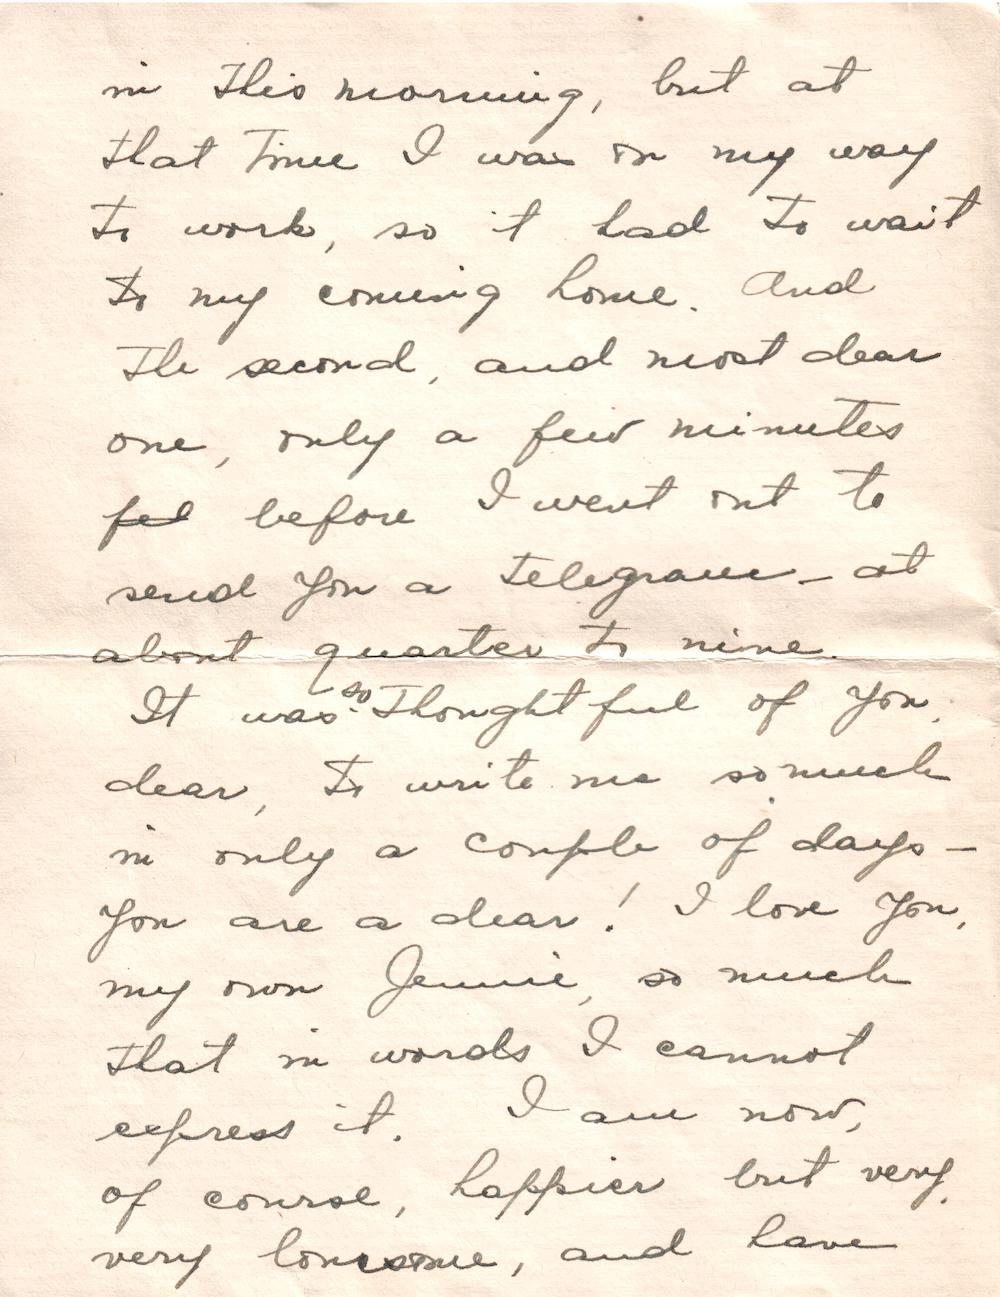 in this morning, but at
that time I was on my way
to work, so it had to wait
to my coming home. And
the second, and most dear
one, only a few minutes
before I went out to
send you a telegram — at
about quarter to nine.
It was so thoughtful of you,
dear, to write me so much
in only a couple of days —
you are a dear! I love you,
my own Jennie, so much
that in words I cannot
express it. I am now,
of course, happier but very,
very lonesome, and have